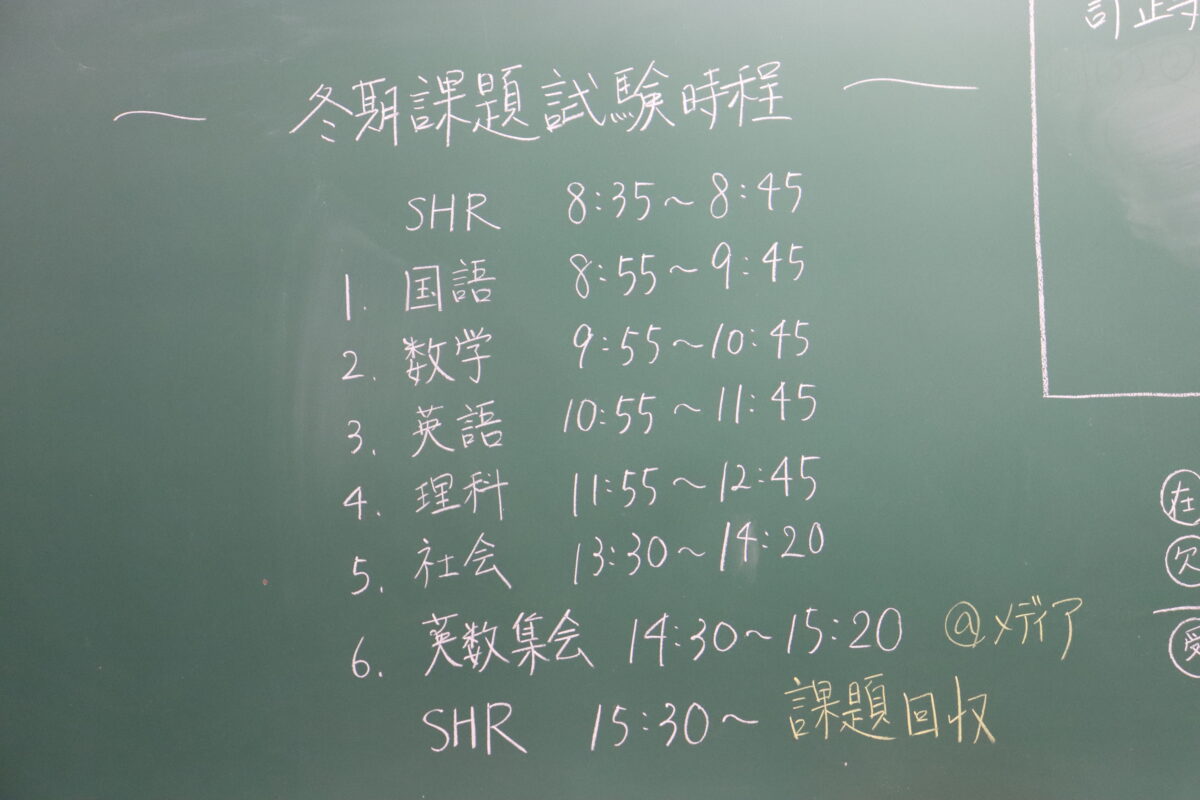 ～ 冬期課題試験時程 ～
SHR 8:35～8:45
1. 国語 8:55～9:45
2. 数学 9:55～10:45
3. 英語 10:55～11:45
4. 理科 11:55～12:45
5. 社会 13:30～14:20
6. 英数集会 14:30～15:20 @メディア
SHR 15:30～ 課題回収
在
欠
受